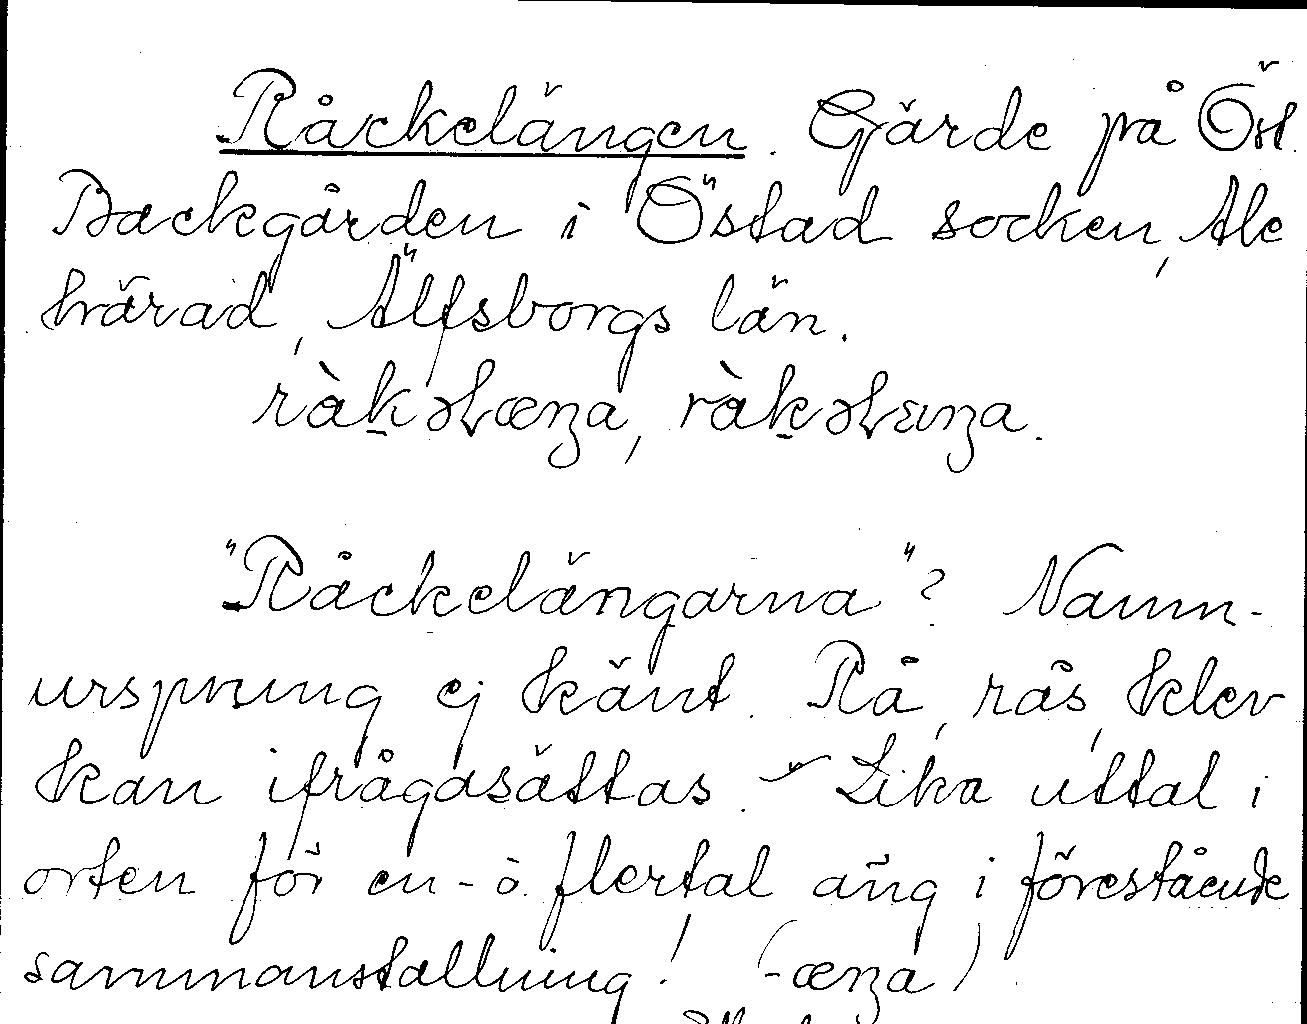 Råckelängen. Gärde på Öst.
Backgården i Östad socken, Ale
härad, Älfsborgs län.
"Råckelängarna"? Namn-
ursprung ej känt. Rå, rås, klev
kan ifrågasättas. - Lika uttal i
orten för en- o. flertal äng i förestående
sammanställning!